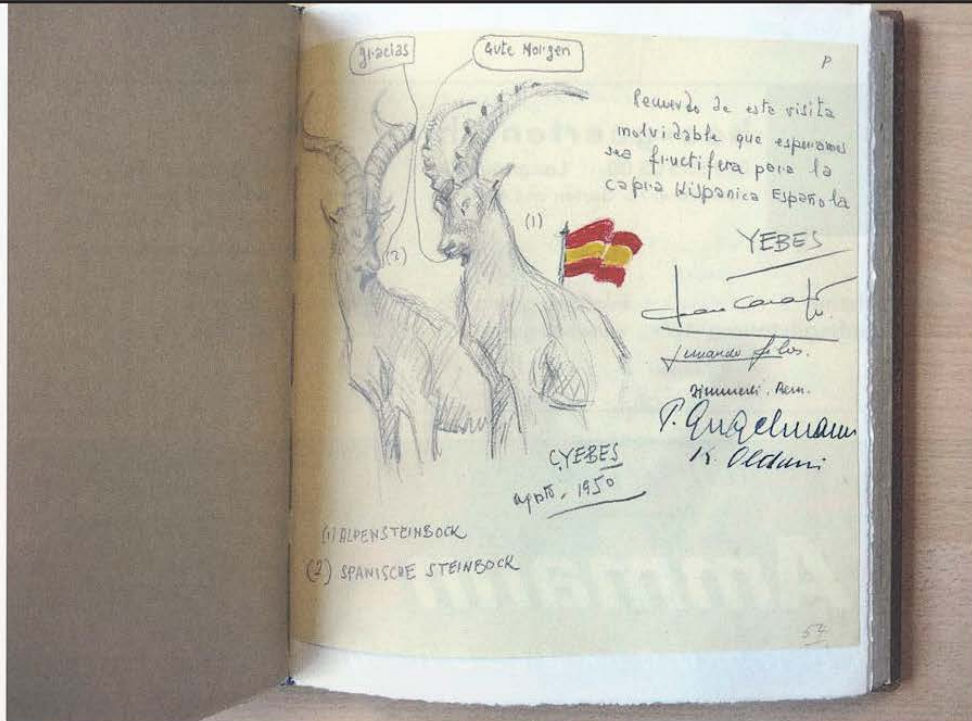 gracias
Gute Morgen
P
Recuerdo de esta visita
inolvidable que esperamos
sea fructifera para la
capra Hispanica Española
(1)
(2)
YEBES
K. Oldani
C,YEBES
agosto, 1950
(1) ALPENSTEINBOCK
(2) SPANISCHE STEINBOCK
54